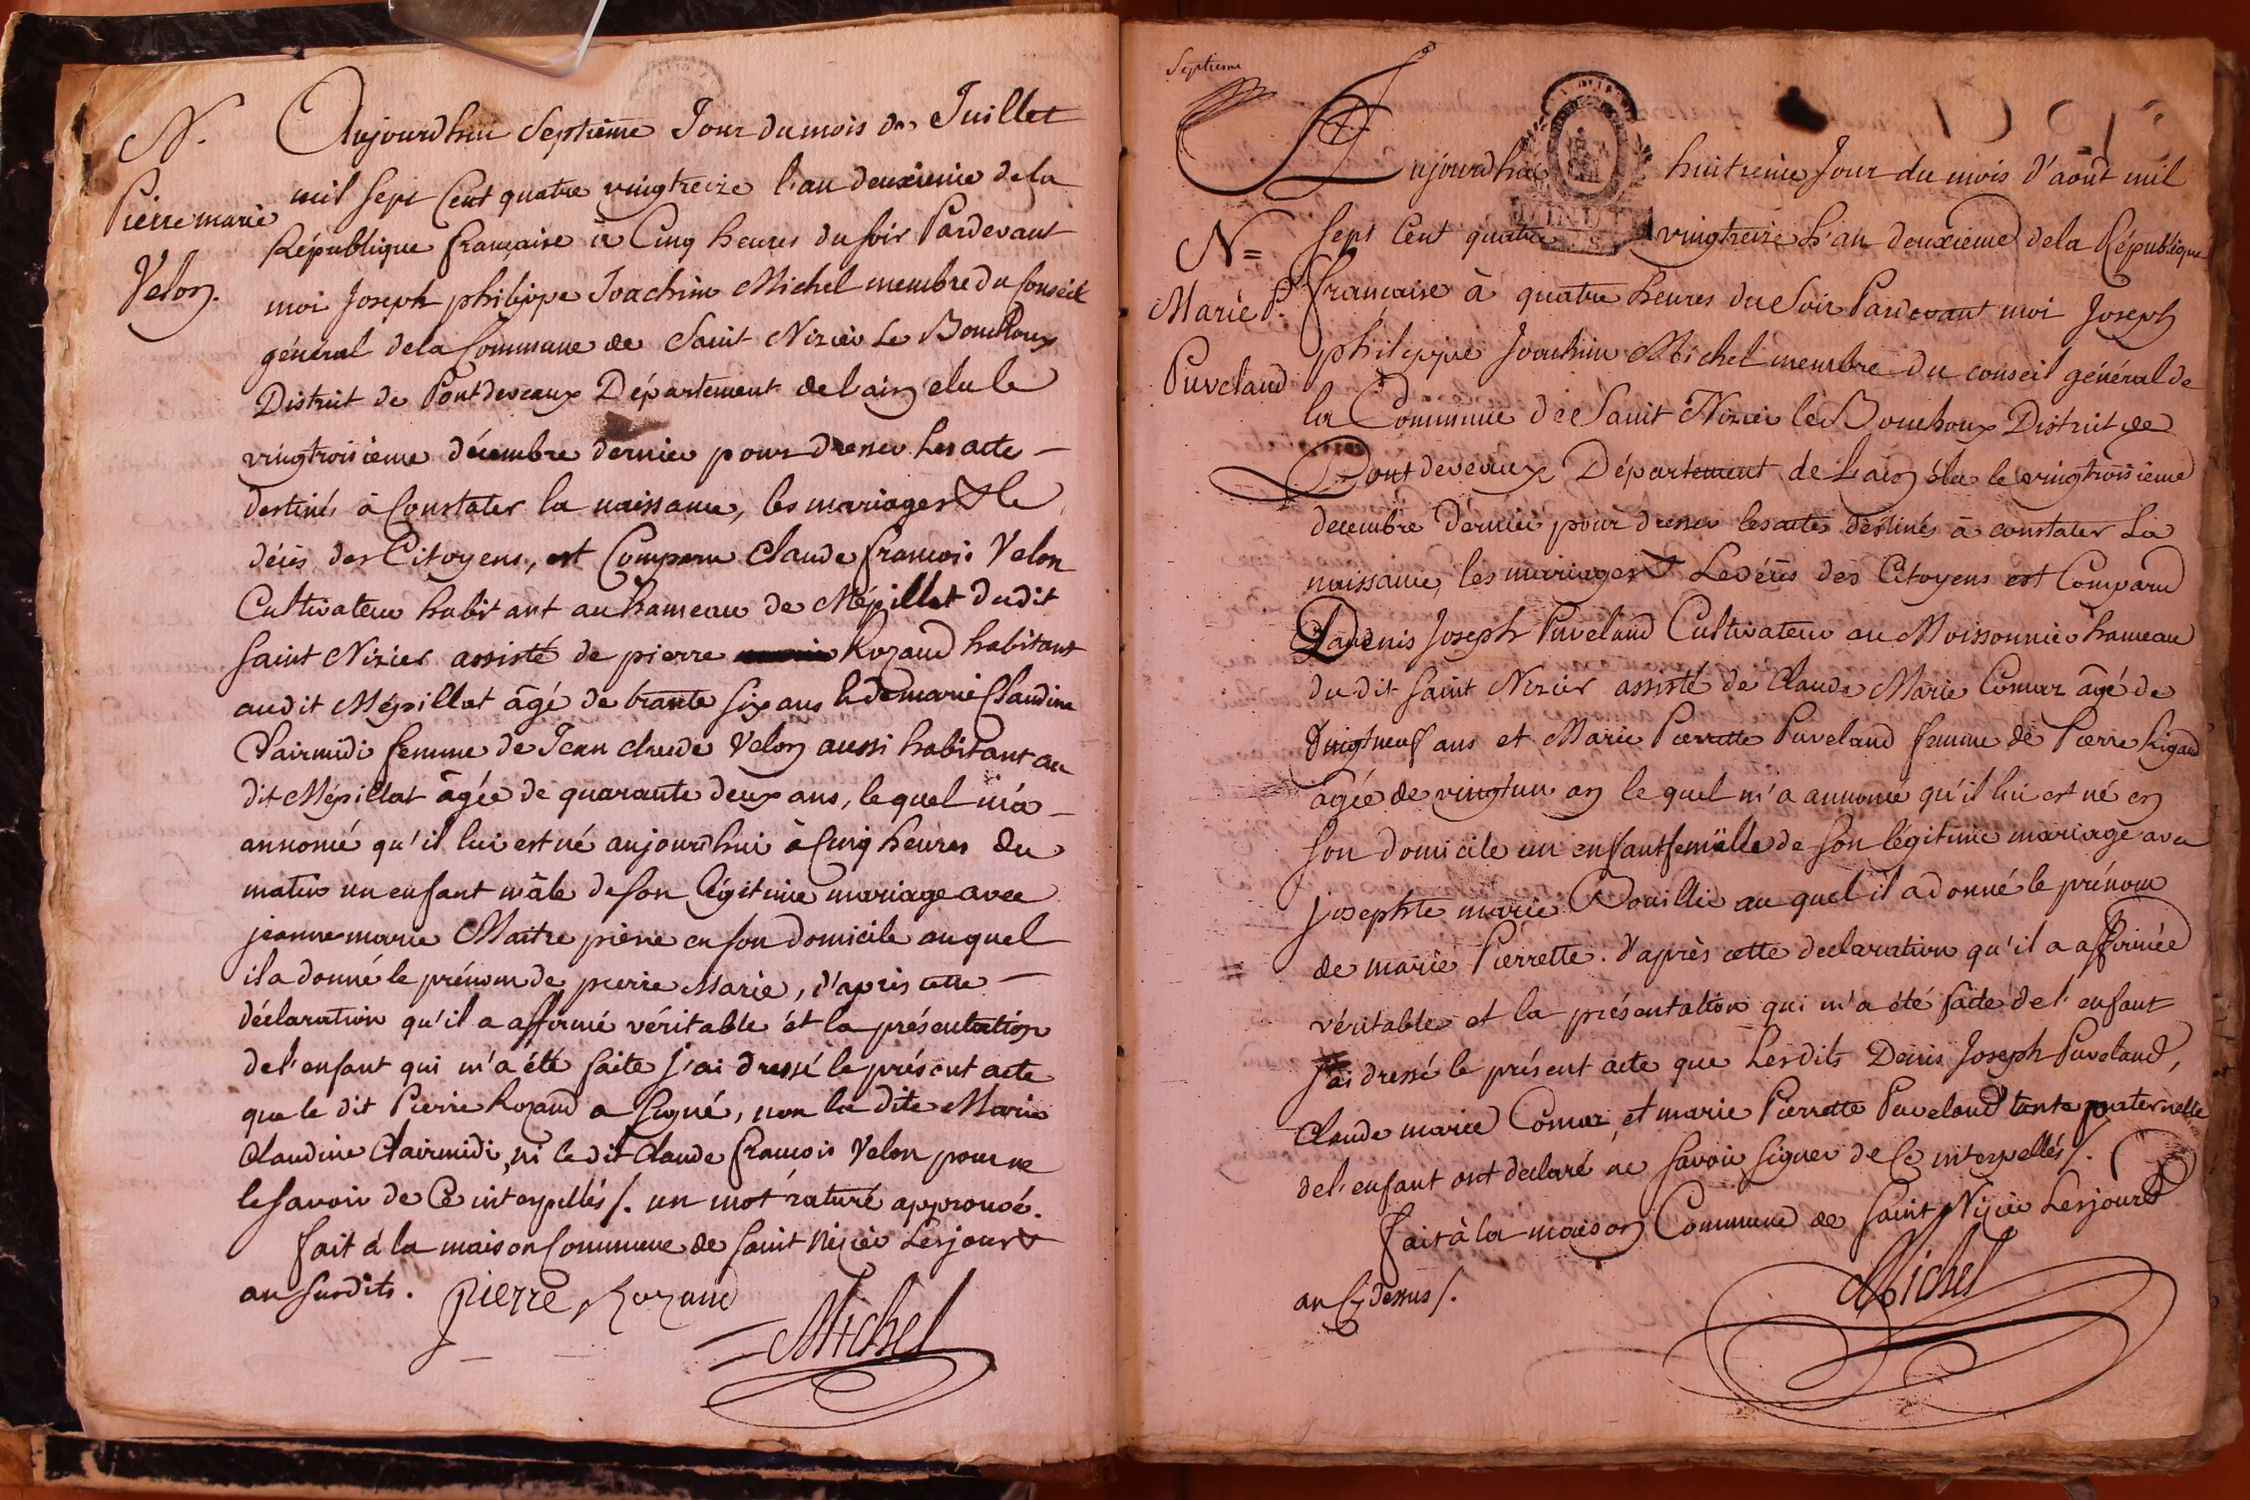 N.
Pierre marie
Velon.
Aujourdhui Septième Jour du mois de Juillet
mil Sept Cent quatre vingtreize l'an deuxieme de la
République française à Cinq heures du soir Pardevant
moi Joseph philippe Joachim Michel membre du Conseil
général de la Commune de Saint Nizier Le Bouchoux
District de Pontdeveaux Département de l'ain elu le
vingtroisieme décembre dernier pour dresser Les acte
destinés à Constater la naissance, les mariages & le
décès des Citoyens, est Comparu Claude françois Velon
Cultivateur habitant au hameau de Mépillat dudit
Saint Nizier assisté de pierre Rozand habitant
audit Mépillat âgé de trante six ans & de marie Claudine
Clairmidi femme de Jean claude Velon aussi habitant au
dit Mépillat âgée de quarante deux ans, lequel m'a
annoncé qu'il lui est né aujourdhui à Cinq heures du
matin un enfant mâle de son légitime mariage avec
jeanne marie Maitre pierre en son domicile auquel
il a donné le prénom de pierre Marie, d'apris cette
déclaration qu'il a affirmé véritable et la présentation
de l'enfant qui m'a été faite j'ai dressé le présent acte
que le dit Pierre Rozand a signé, non la dite Marie
Claudine Clairmidi, ni le dit Claude françois Velon pour ne
le savoir de Ce interpellés /. un mot raturé approuvé.
fait à la maison Commune de Saint Nizier Les jour &
an susdits.
pierre Rozand
Michel
Septieme
N=
Marie P.
Puveland
Aujourdhui huitieme Jour du mois d'août mil
Sept Cent quatre vingtreize L'an deuxieme de la République
française à quatre heures du Soir Pardevant moi Joseph
philippe Joachim Michel membre du conseil général de
la Commune de Saint Nizier le Bouchoux District de
Pont deveaux Département de L'ain élu le vingtroisieme
decembre dernier pour dresser les actes destinés à constater La
naissance, les mariages & Le décès des Citoyens est Comparu
Denis Joseph Puveland Cultivateur au Moissonnier hameau
du dit Saint Nizier assisté de Claude Marie Comaz âgé de
Vingtneuf ans et Marie Pierrette Puveland femme de Pierre Rigaud
agée de vingtun an le quel m'a annoncé qu'il lui est né en
son domicile un enfant femëlle de son légitime mariage avec
josephte marie au quel il a donné le prénom
de marie Pierrette. d'après cette declaration qu'il a affirmée
véritable et la présentation qui m'a été faite de l'enfant
j'ai dressé le présent acte que Lesdits Denis Joseph Puveland,
Claude marie Comaz, et marie Pierrette Puveland tante paternelle
de l'enfant ont declaré ne savoir signer de Ce interpellés /.
fait à la maison Commune de Saint Nizier Les jour &
an Cy dessus /.
Michel